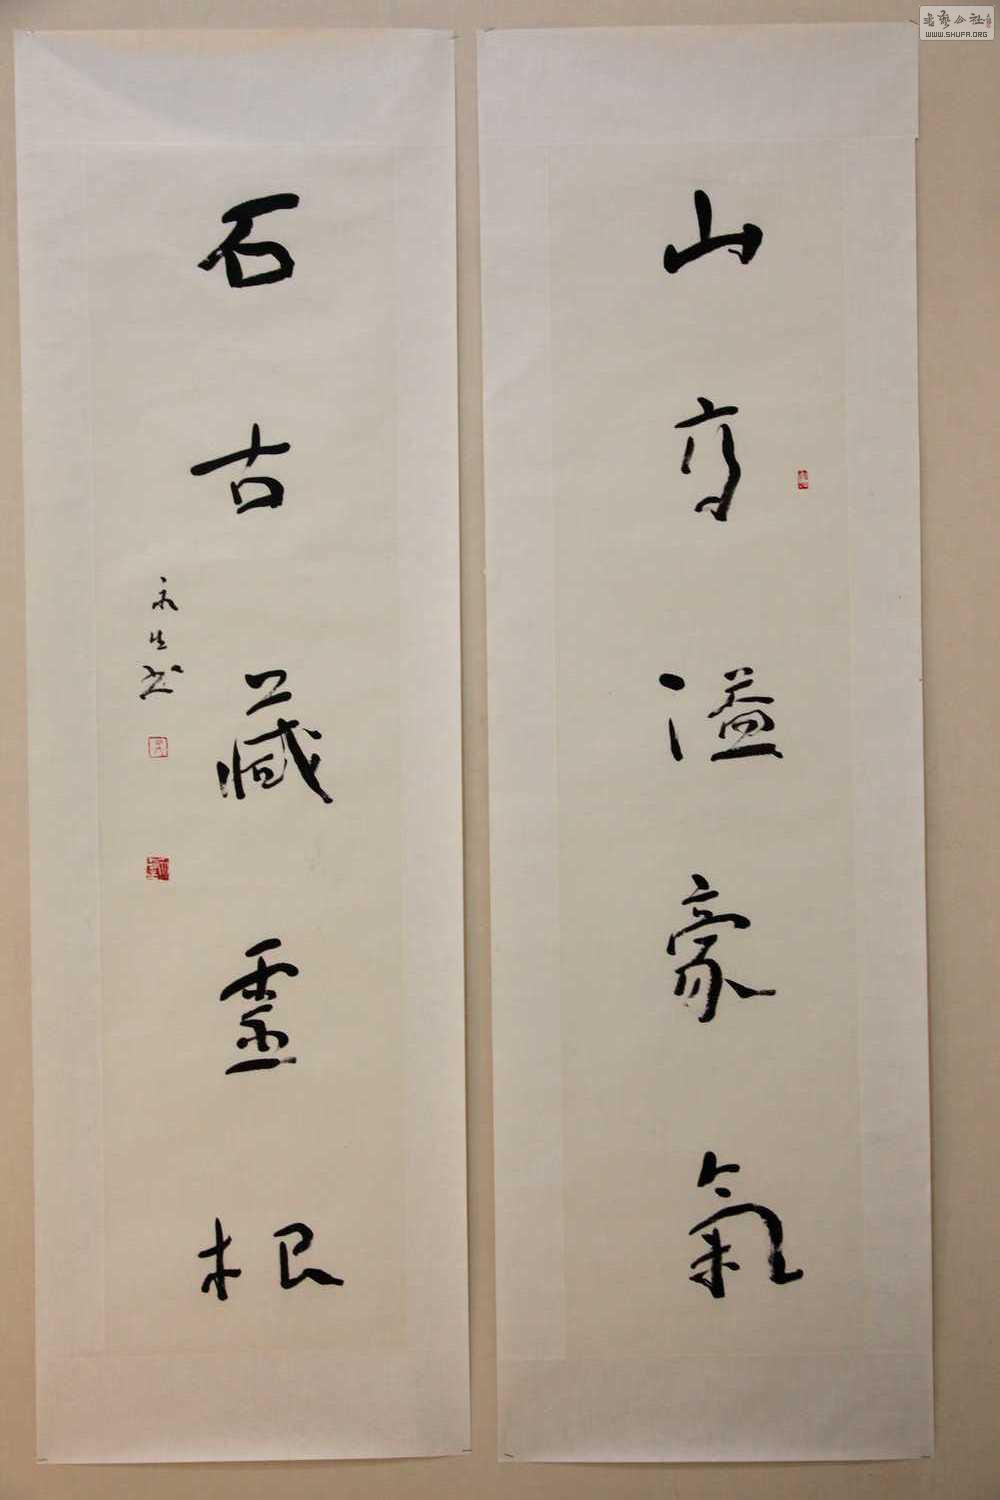 山高溢豪氣
石古藏靈根
永生书
书艺公社
WWW.SHUFA.ORG